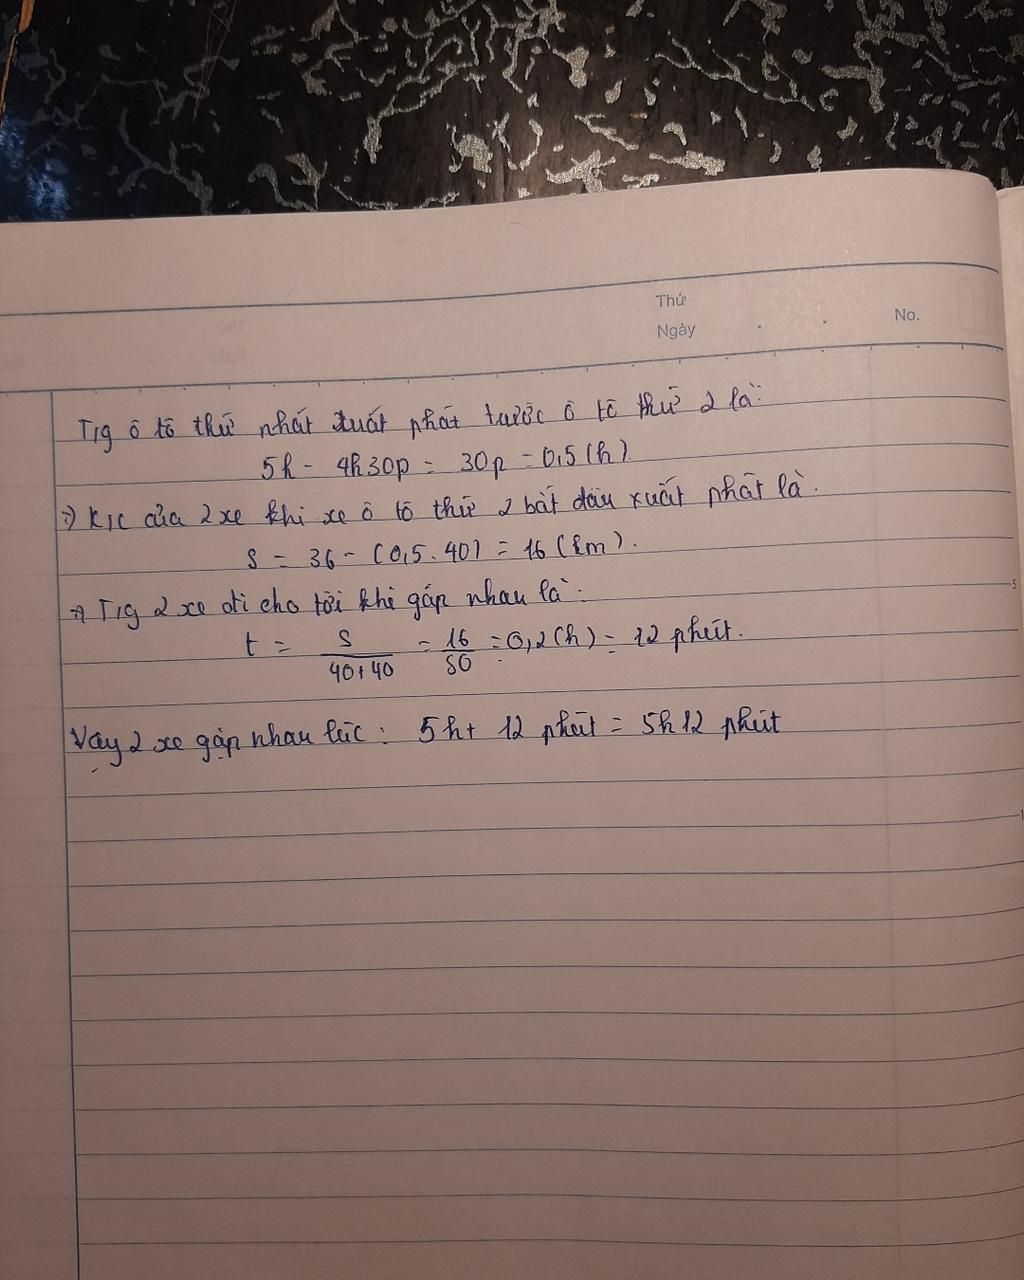 Thứ
Ngày
No.
T/g ô tô thứ nhất xuất phát trước ô tô thứ 2 là:
5h - 4h30p = 30p = 0,5 (h)
=) K/c của 2 xe khi xe ô tô thứ 2 bắt đầu xuất phát là.
S = 36 - (0,5.40) = 16 (km).
=) T/g 2 xe đi cho tới khi gặp nhau là:
t = S / (40+40) = 16/80 = 0,2 (h) = 12 phút.
Vậy 2 xe gặp nhau lúc: 5h + 12 phút = 5h12 phút